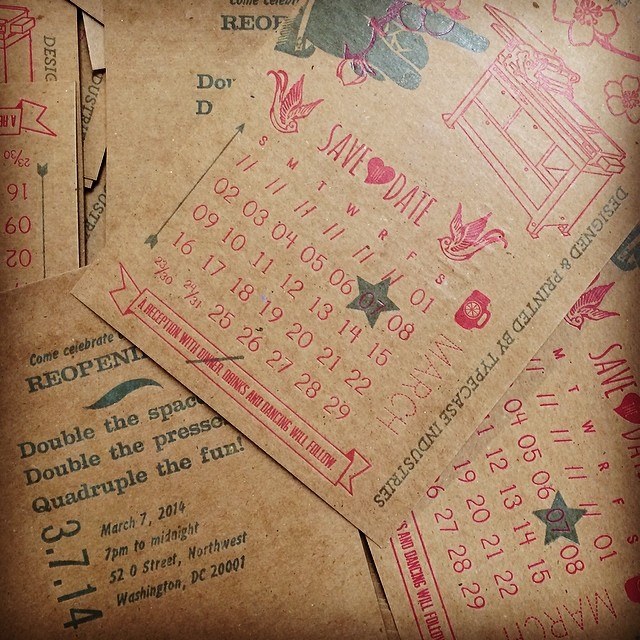 Come celebrate
REOPE
Do
D
SAVE DATE
S M T W R F S
// // // // // // 01
02 03 04 05 06 07 08
09 10 11 12 13 14 15
16 17 18 19 20 21 22
23/30 24/31 25 26 27 28 29
MARCH
A RECEPTION WITH DINNER, DRINKS AND DANCING WILL FOLLOW.
DESIGNED & PRINTED BY TYPECASE INDUSTRIES
Come celebrate
REOPEN
Double the space
Double the presse
Quadruple the fun!
3.7.14
March 7, 2014
7pm to midnight
52 O Street, Northwest
Washington, DC 20001
SAVE DA
M T W R F S
// // // 01
04 05 06 07 08
11 12 13 14 15
19 20 21 22
26 27 28 29
MARCH
S AND DANCING WILL FOLLOW
DESIG
DUSTRIES
DUSTR
A RE
23/30
16
09
02